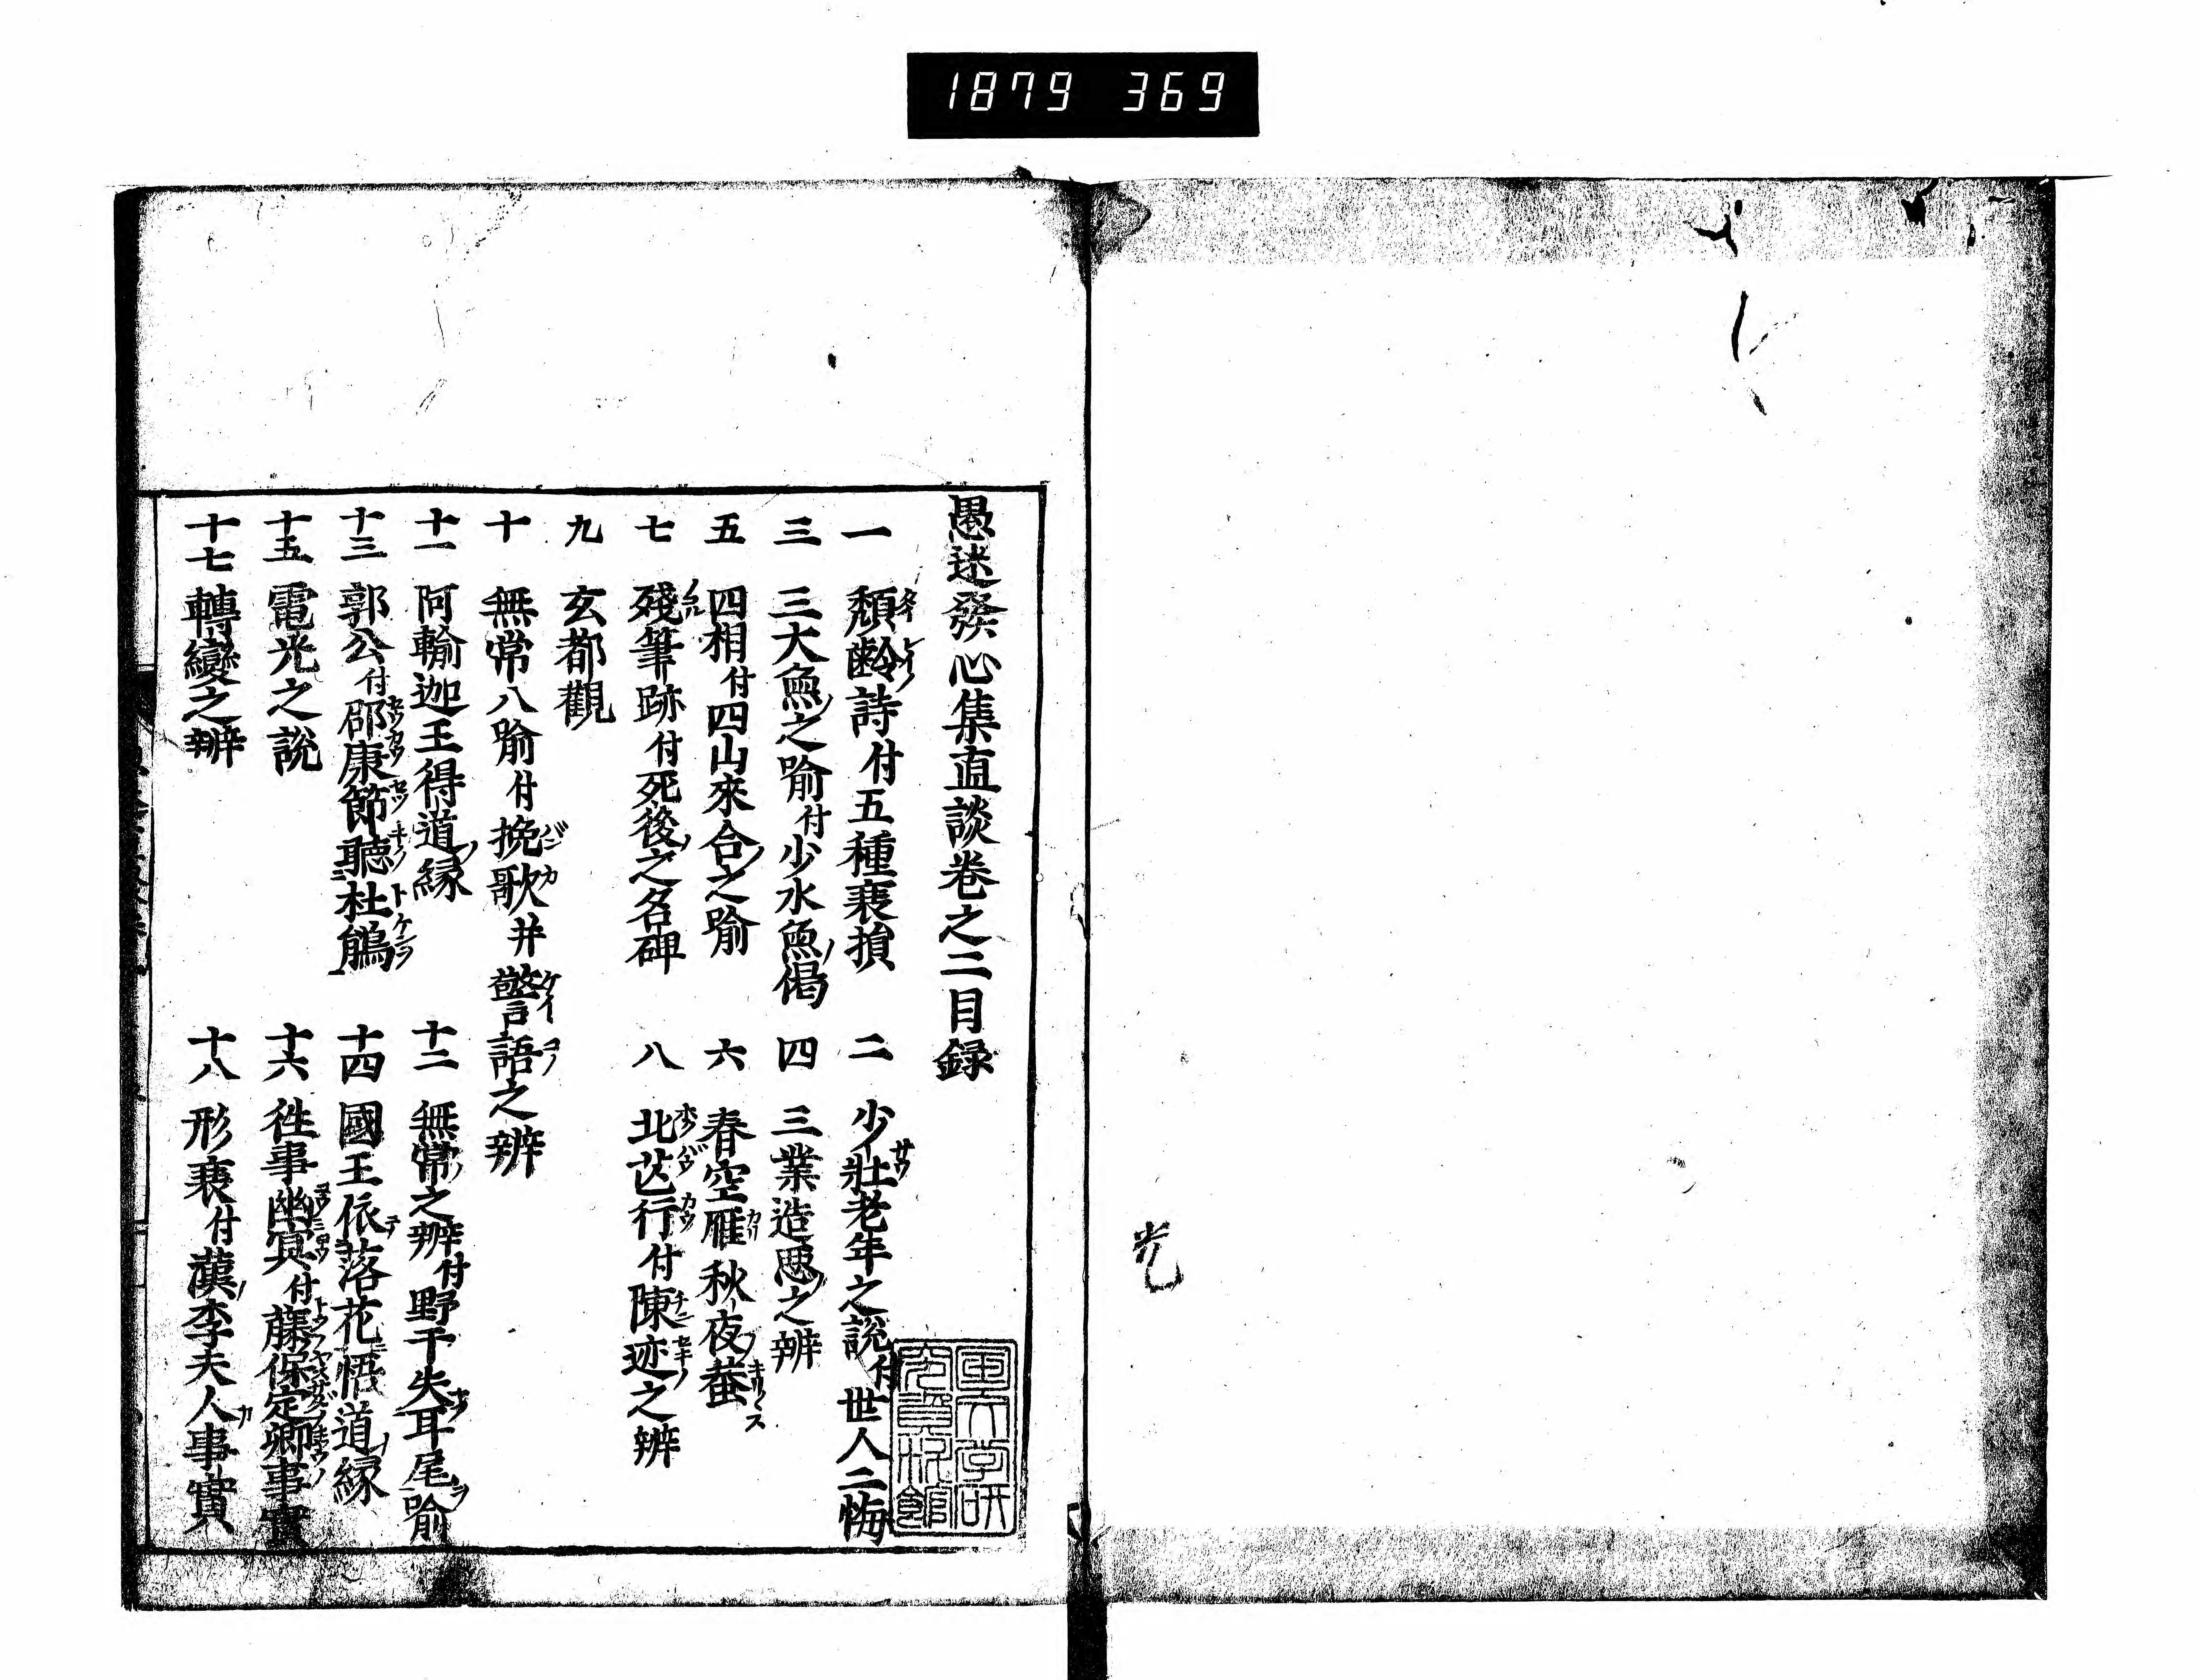 1879 369
愚迷發心集直談卷之二目録
一 頽齡詩付五種衰損 二 少壯老年之說付世人二悔
三 三大魚之喻付少水魚偈 四 三業造惡之辨
五 四相付四山來合之喻 六 春空雁秋夜蛬
七 殘筆跡付死後之名碑 八 北芒行付陳迹之辨
九 玄都觀
十 無常八喻付挽歌并警語之辨
十一 阿輸迦王得道縁 十二 無常之辨付野干失耳尾喻
十三 郭公付邵康節聽杜鵑 十四 國王依落花悟道縁
十五 電光之說 十六 徃事幽冥付藤保定卿事實
十七 轉變之辨 十八 形衰付漢李夫人事實
国文学研
究資料館